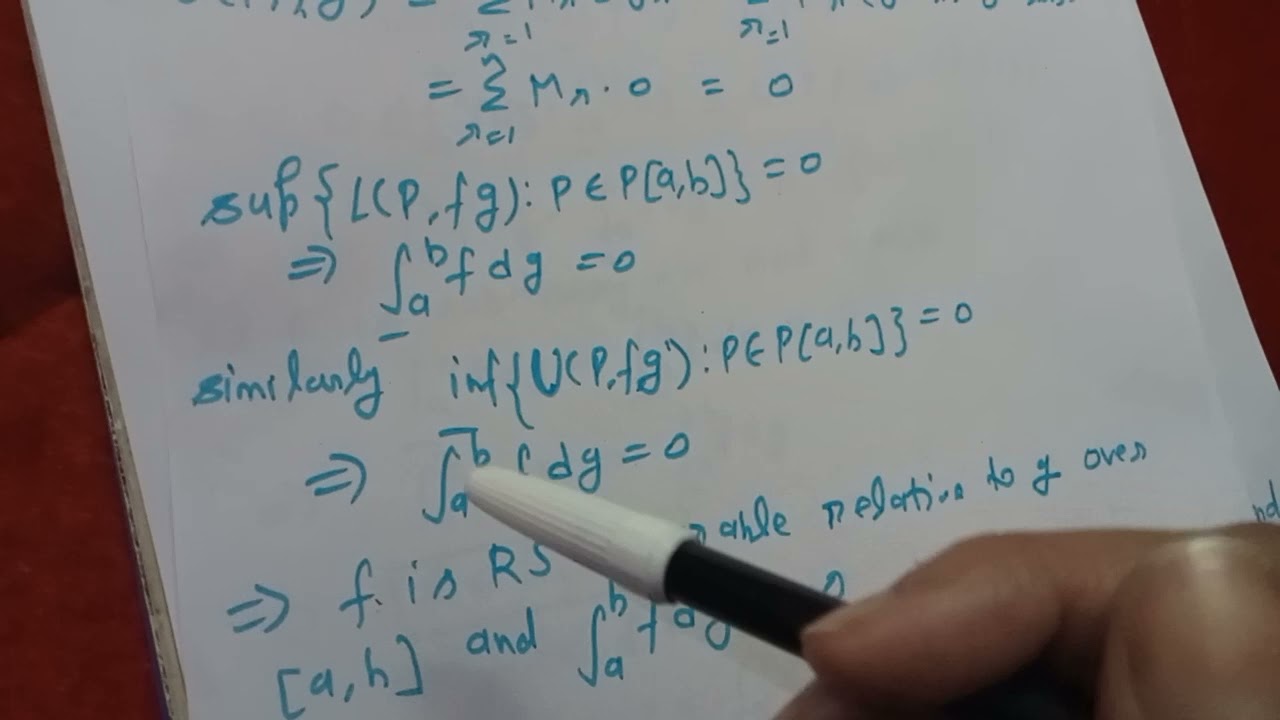 = Σ Mr · 0 = 0
r=1
sup{L(P,fg): P∈P[a,b]} = 0
⇒ ∫ₐᵇ f dg = 0
similarly inf{U(P,fg): P∈P[a,b]} = 0
⇒ ∫ₐᵇ f dg = 0
⇒ f is RS relation to g over
[a,b] and ∫ₐᵇ f dg